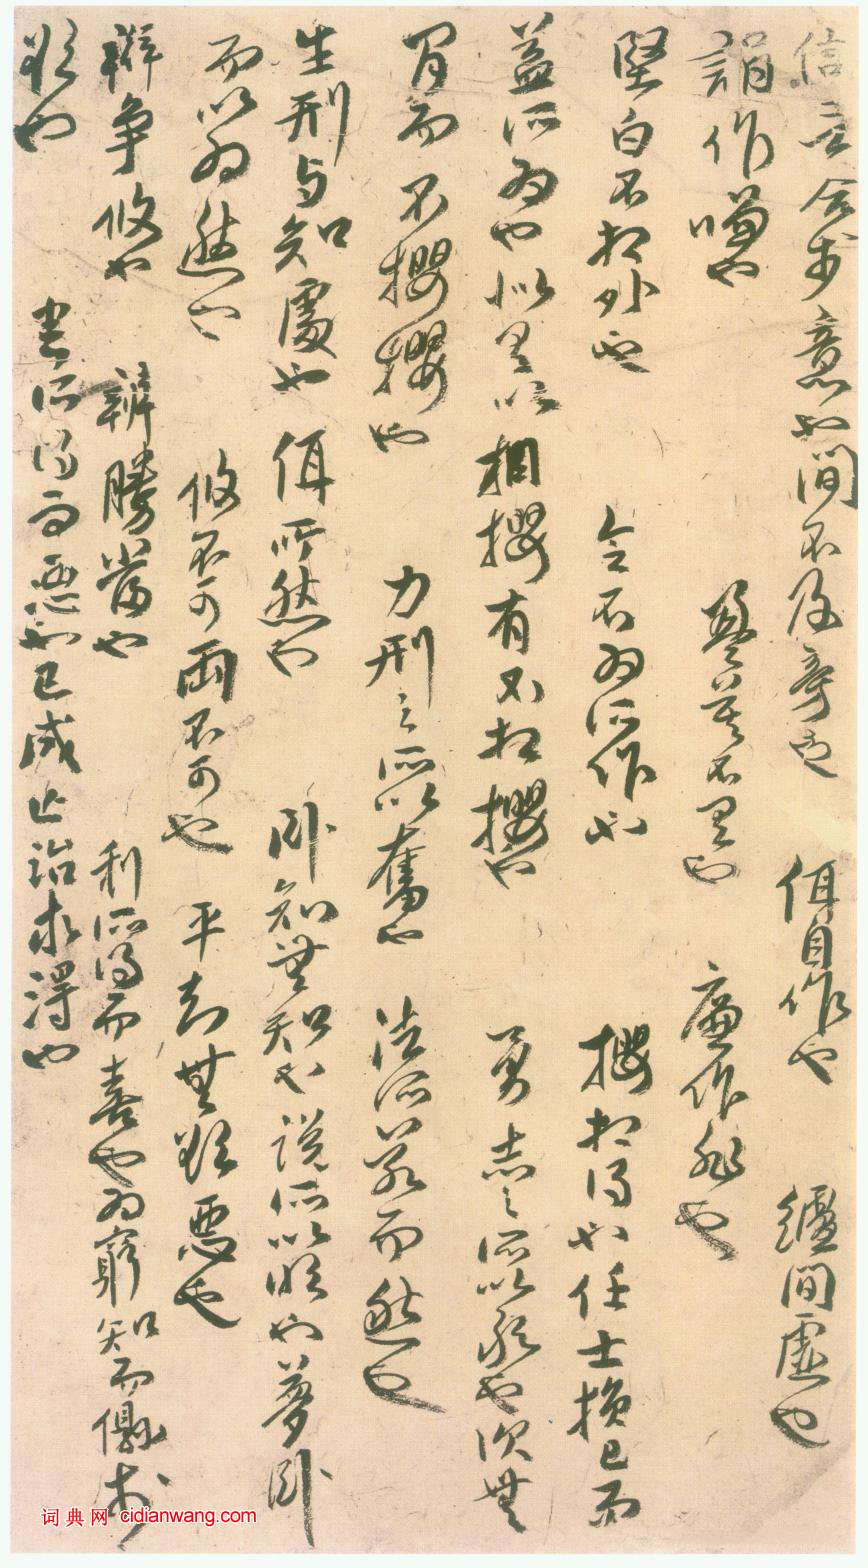 信言合於意也間不及旁也 佴自作也 纑間虛也
作嗛也 盈莫不有也 廉作非也
堅白不相外也 令不為所作也 攖相得也任士損己而
益所為也似有以相攖有不相攖也 勇志之所以敢也次無
間而不攖攖也 力刑之所以奮也 法所若而然也
生刑与知處也 佴所然也 臥知無知也說所以明也夢臥
而以為然也 攸不可兩不可也 平知無欲惡也
辯爭攸也 辯勝當也 利所得而喜也為窮知而𠐊於
欲也 害所得而惡也已成亡治求得也
词典网 cidianwang.com